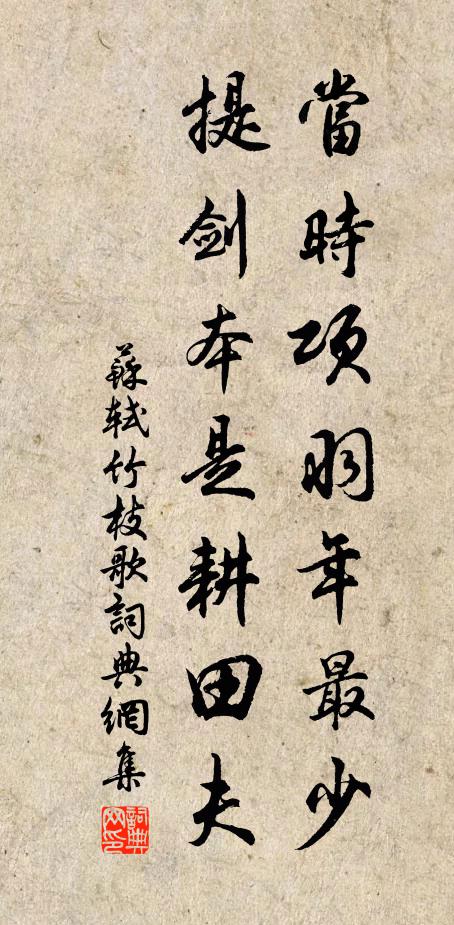 當時項羽年最少
提剑本是耕田夫
蘇軾竹枝歌詞典網集
詞典網印